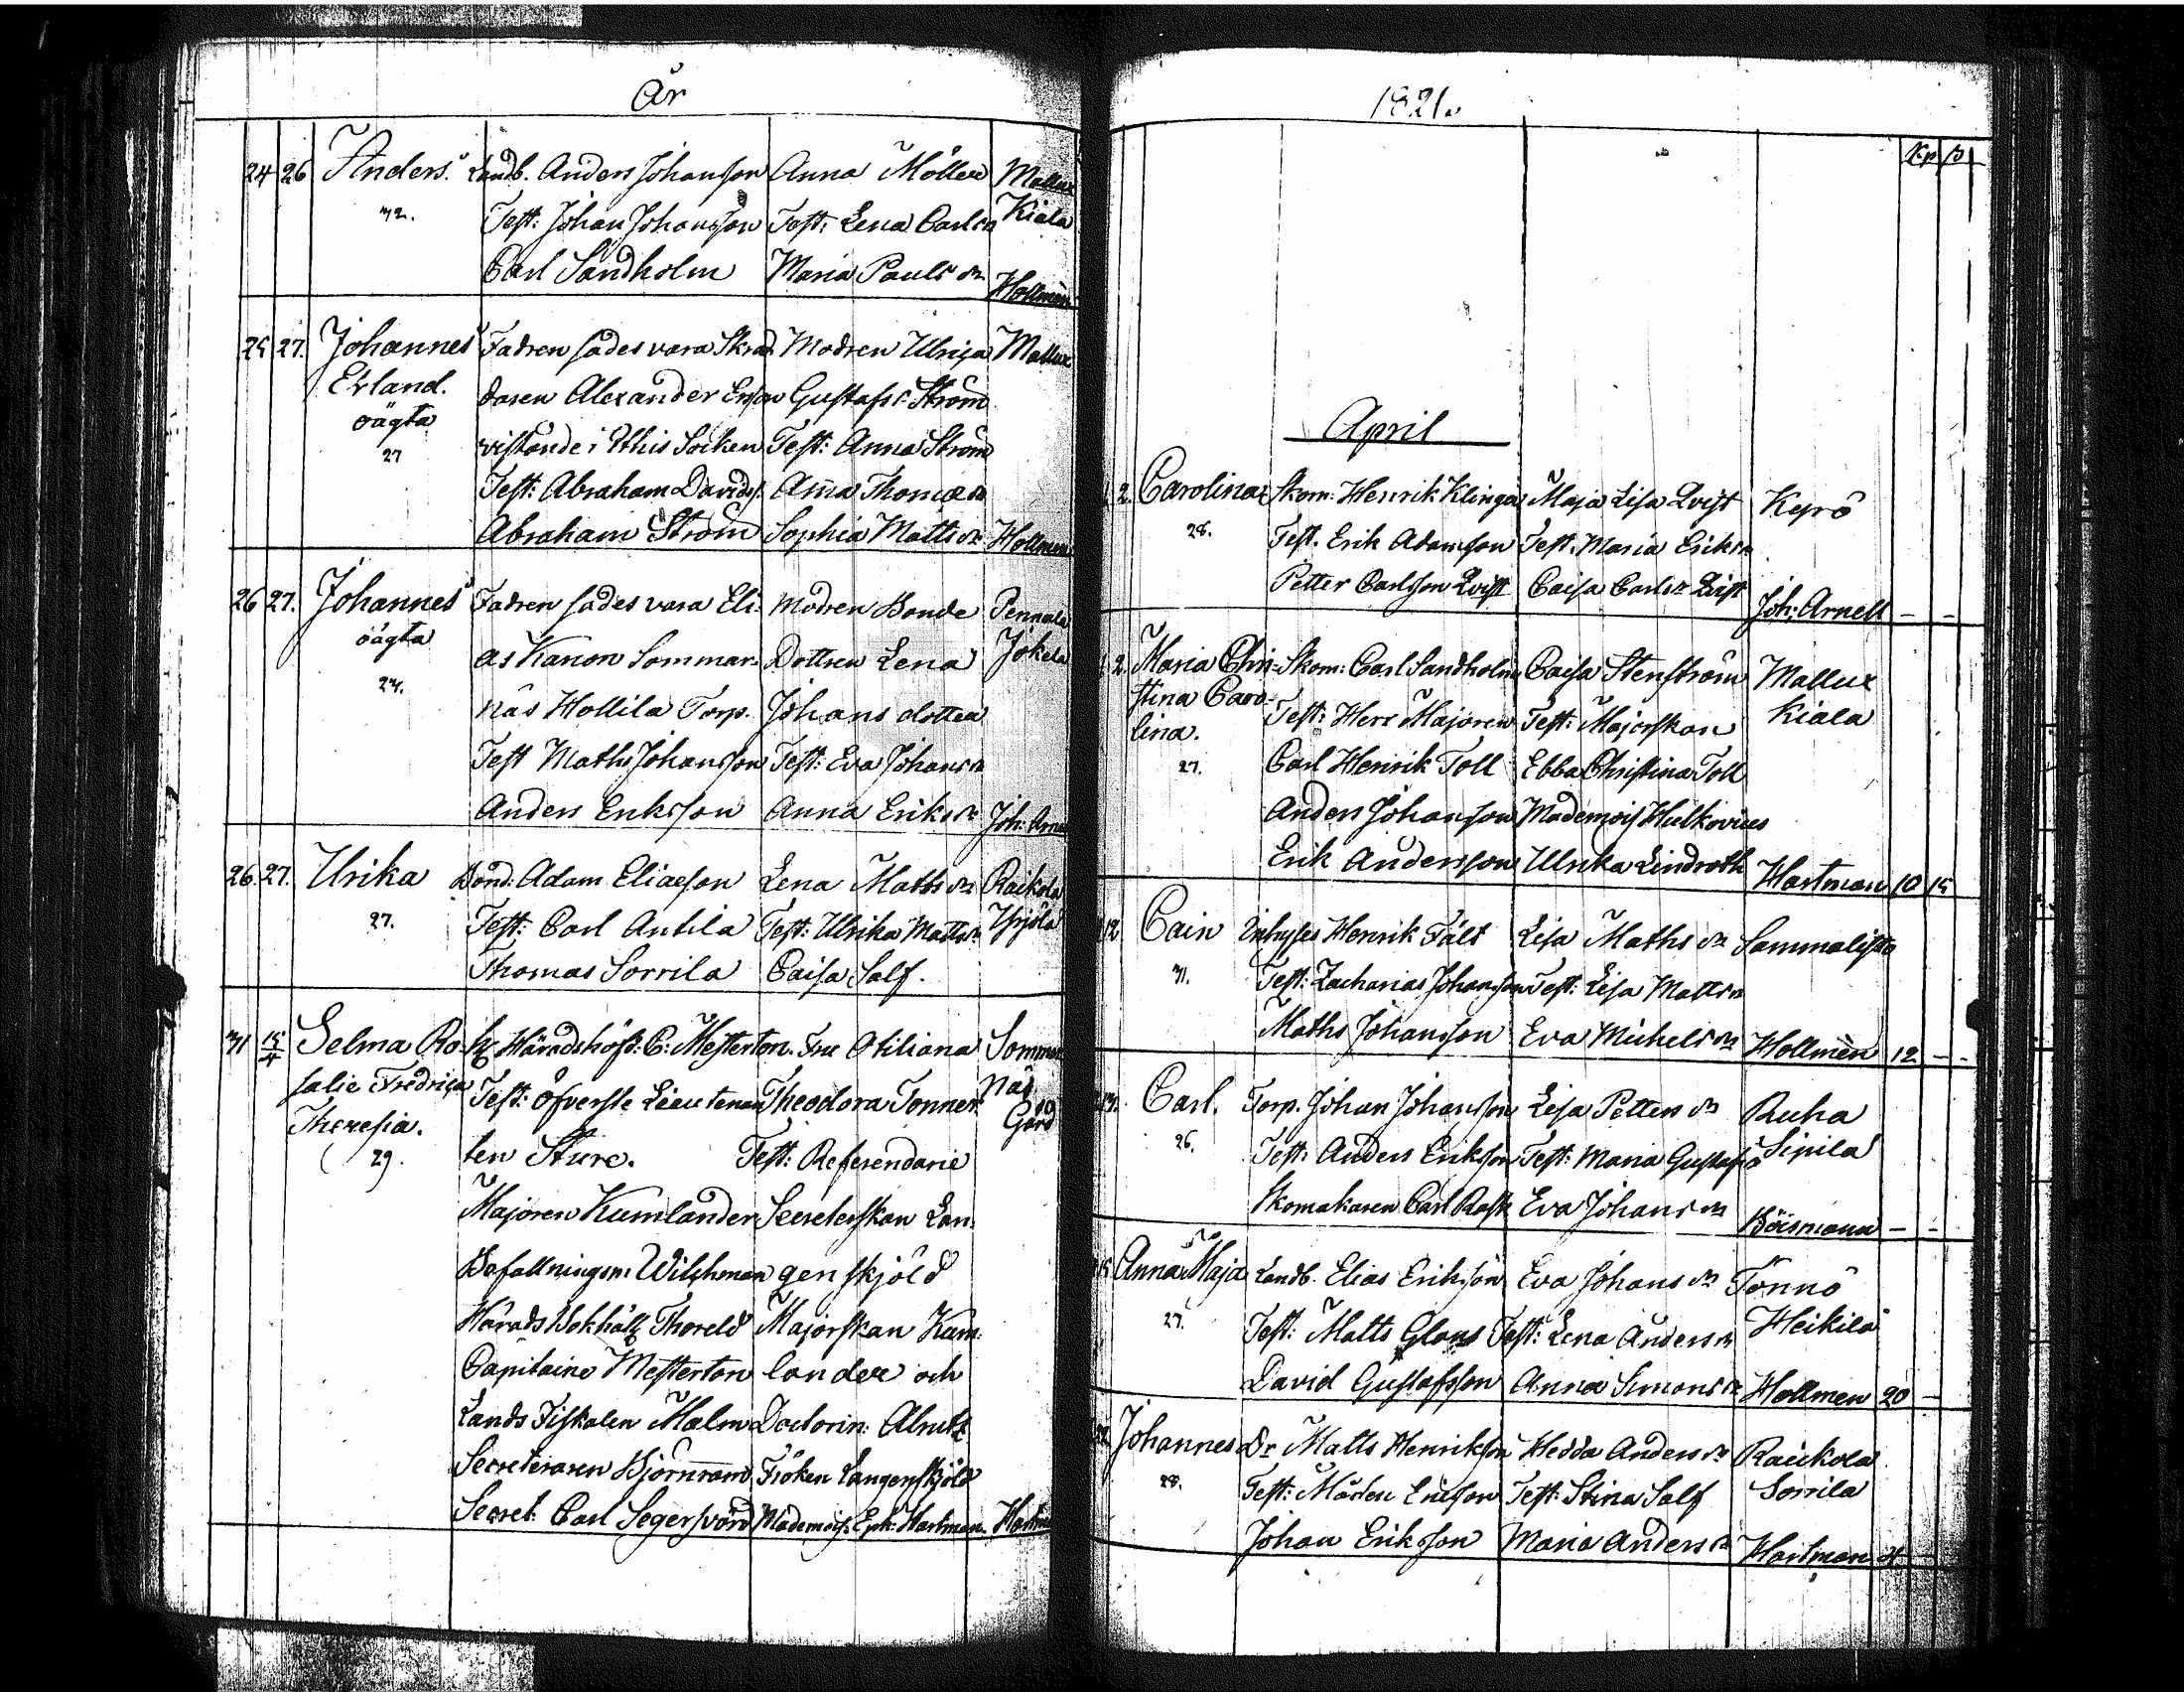 År
24 26 Anders. Landb. Anders Johansson Anna Möller Mallux
32. Test: Johan Johansson Test: Lena Carlsdr Kiala
Carl Sandholm Maria Paulsdr Hollmén
25 27. Johannes Fadren sades vara Skrad Modren Ulrica Mallux
Erland. daren Alexander Ersson Gustafsdr Ström
oägta vistande i Vthis Socken Test: Anna Ström
27 Test: Abraham Davidss. Anna Thomasdr
Abraham Ström Sophia Mattsdr Hollmén
26 27. Johannes Fadren sades vara Eli- Modren Bonde Pennala
oägta as Karion Sommar- Dottren Lena Jokela
24. näs Hollila Torp. Johans dotter
Test Maths Johansson Test: Eva Johansdr
Anders Eriksson Anna Eriksdr Joh: Arne
26. 27. Ulrika Bond: Adam Eliaeson Lena Mathsdr Raikola
27. Test: Carl Antila Test: Ulrika Mattsdr Yrjölä
Thomas Sorrila Caisa Salf.
31 15/4 Selma Ro- Hr Häradshöfd: C: Mesterton. Fru Otiliana Sommar
salie Fredrica Test: Öfverste Lieutenan Theodora Tonner näs
Theresia. ten Sture. Test: Referendarie Gård
29. Majoren Kumlander Secreterskan Lan-
Befallningsm: Wilchman genskjöld
Härads Bokhåll: Thoreld Majorskan Kum-
Capitaine Mesterton lander och
Lands Fiskalen Malm Doctorin: Alnutz
Secreteraren Björnram Fröken Langenskjöld
Secret: Carl Segersvärd Mademois: Hartman. Hartm
1821.
Kp ß
April
2. Carolina Skom: Henrik Klinga Maja Lisa Qvist Kyrö
28. Test. Erik Adamsson Test. Maria Eriksdr
Petter Carlsson Qvist Caisa Carlsdr Qvist Joh: Arnell - -
2. Maria Chri- Skom: Carl Sandholm Caisa Stenström Mallux
stina Caro- Test: Herr Majoren Test: Majorskan Kiala
lina. Carl Henrik Toll Ebba Christina Toll
27. Anders Johansson Mademois Hulkovius
Erik Andersson Ulrika Lindroth Hartman 10 15
12 Cain Inhyses Henrik Fält Lisa Mathsdr Sammalisto
31. Test: Zacharias Johansson Test: Lisa Mattsdr
Maths Johansson Eva Michelsdr Hollmèn 12 - -
Carl. Torp. Johan Johansson Lisa Pettersdr Ruha
26. Test: Anders Eriksson Test: Maria Gustafsdr Sipilä
Skomakaren Carl Rask Eva Johansdr Böismann - -
15 Anna Maja Landb. Elias Eriksson Eva Johansdr Tönnö
27. Test: Matts Glans Test: Lena Andersdr Heikilä
David Gustafsson Anna Simonsdr Hollmen 20 -
22 Johannes Dr Matts Henriksson Hedda Andersdr Raickola
28. Test: Mårten Ericson Test: Stina Salf Sorrila
Johan Eriksson Maria Andersdr Hartman